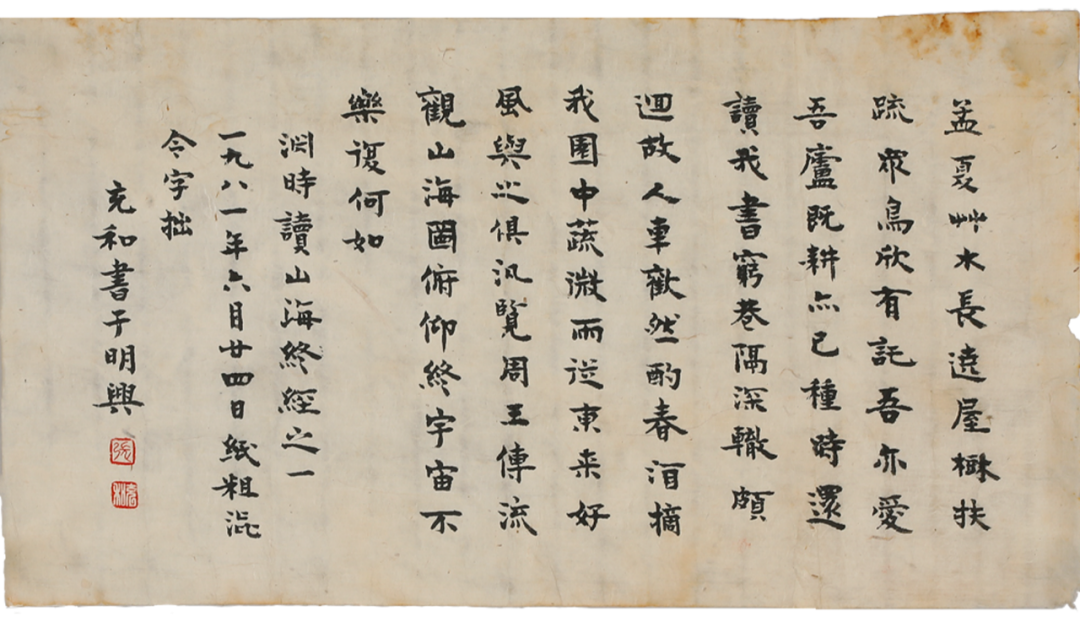 孟夏艸木長遶屋樹扶
疏眾鳥欣有託吾亦愛
吾廬既耕亦已種時還
讀我書窮巷隔深轍頗
迴故人車歡然酌春酒摘
我園中蔬微雨從東来好
風與之俱汎覽周王傳流
觀山海圖俯仰終宇宙不
樂復何如
渊時讀山海終經之一
一九八一年六月廿四日紙粗澁
令字拙
充和書于明興
張